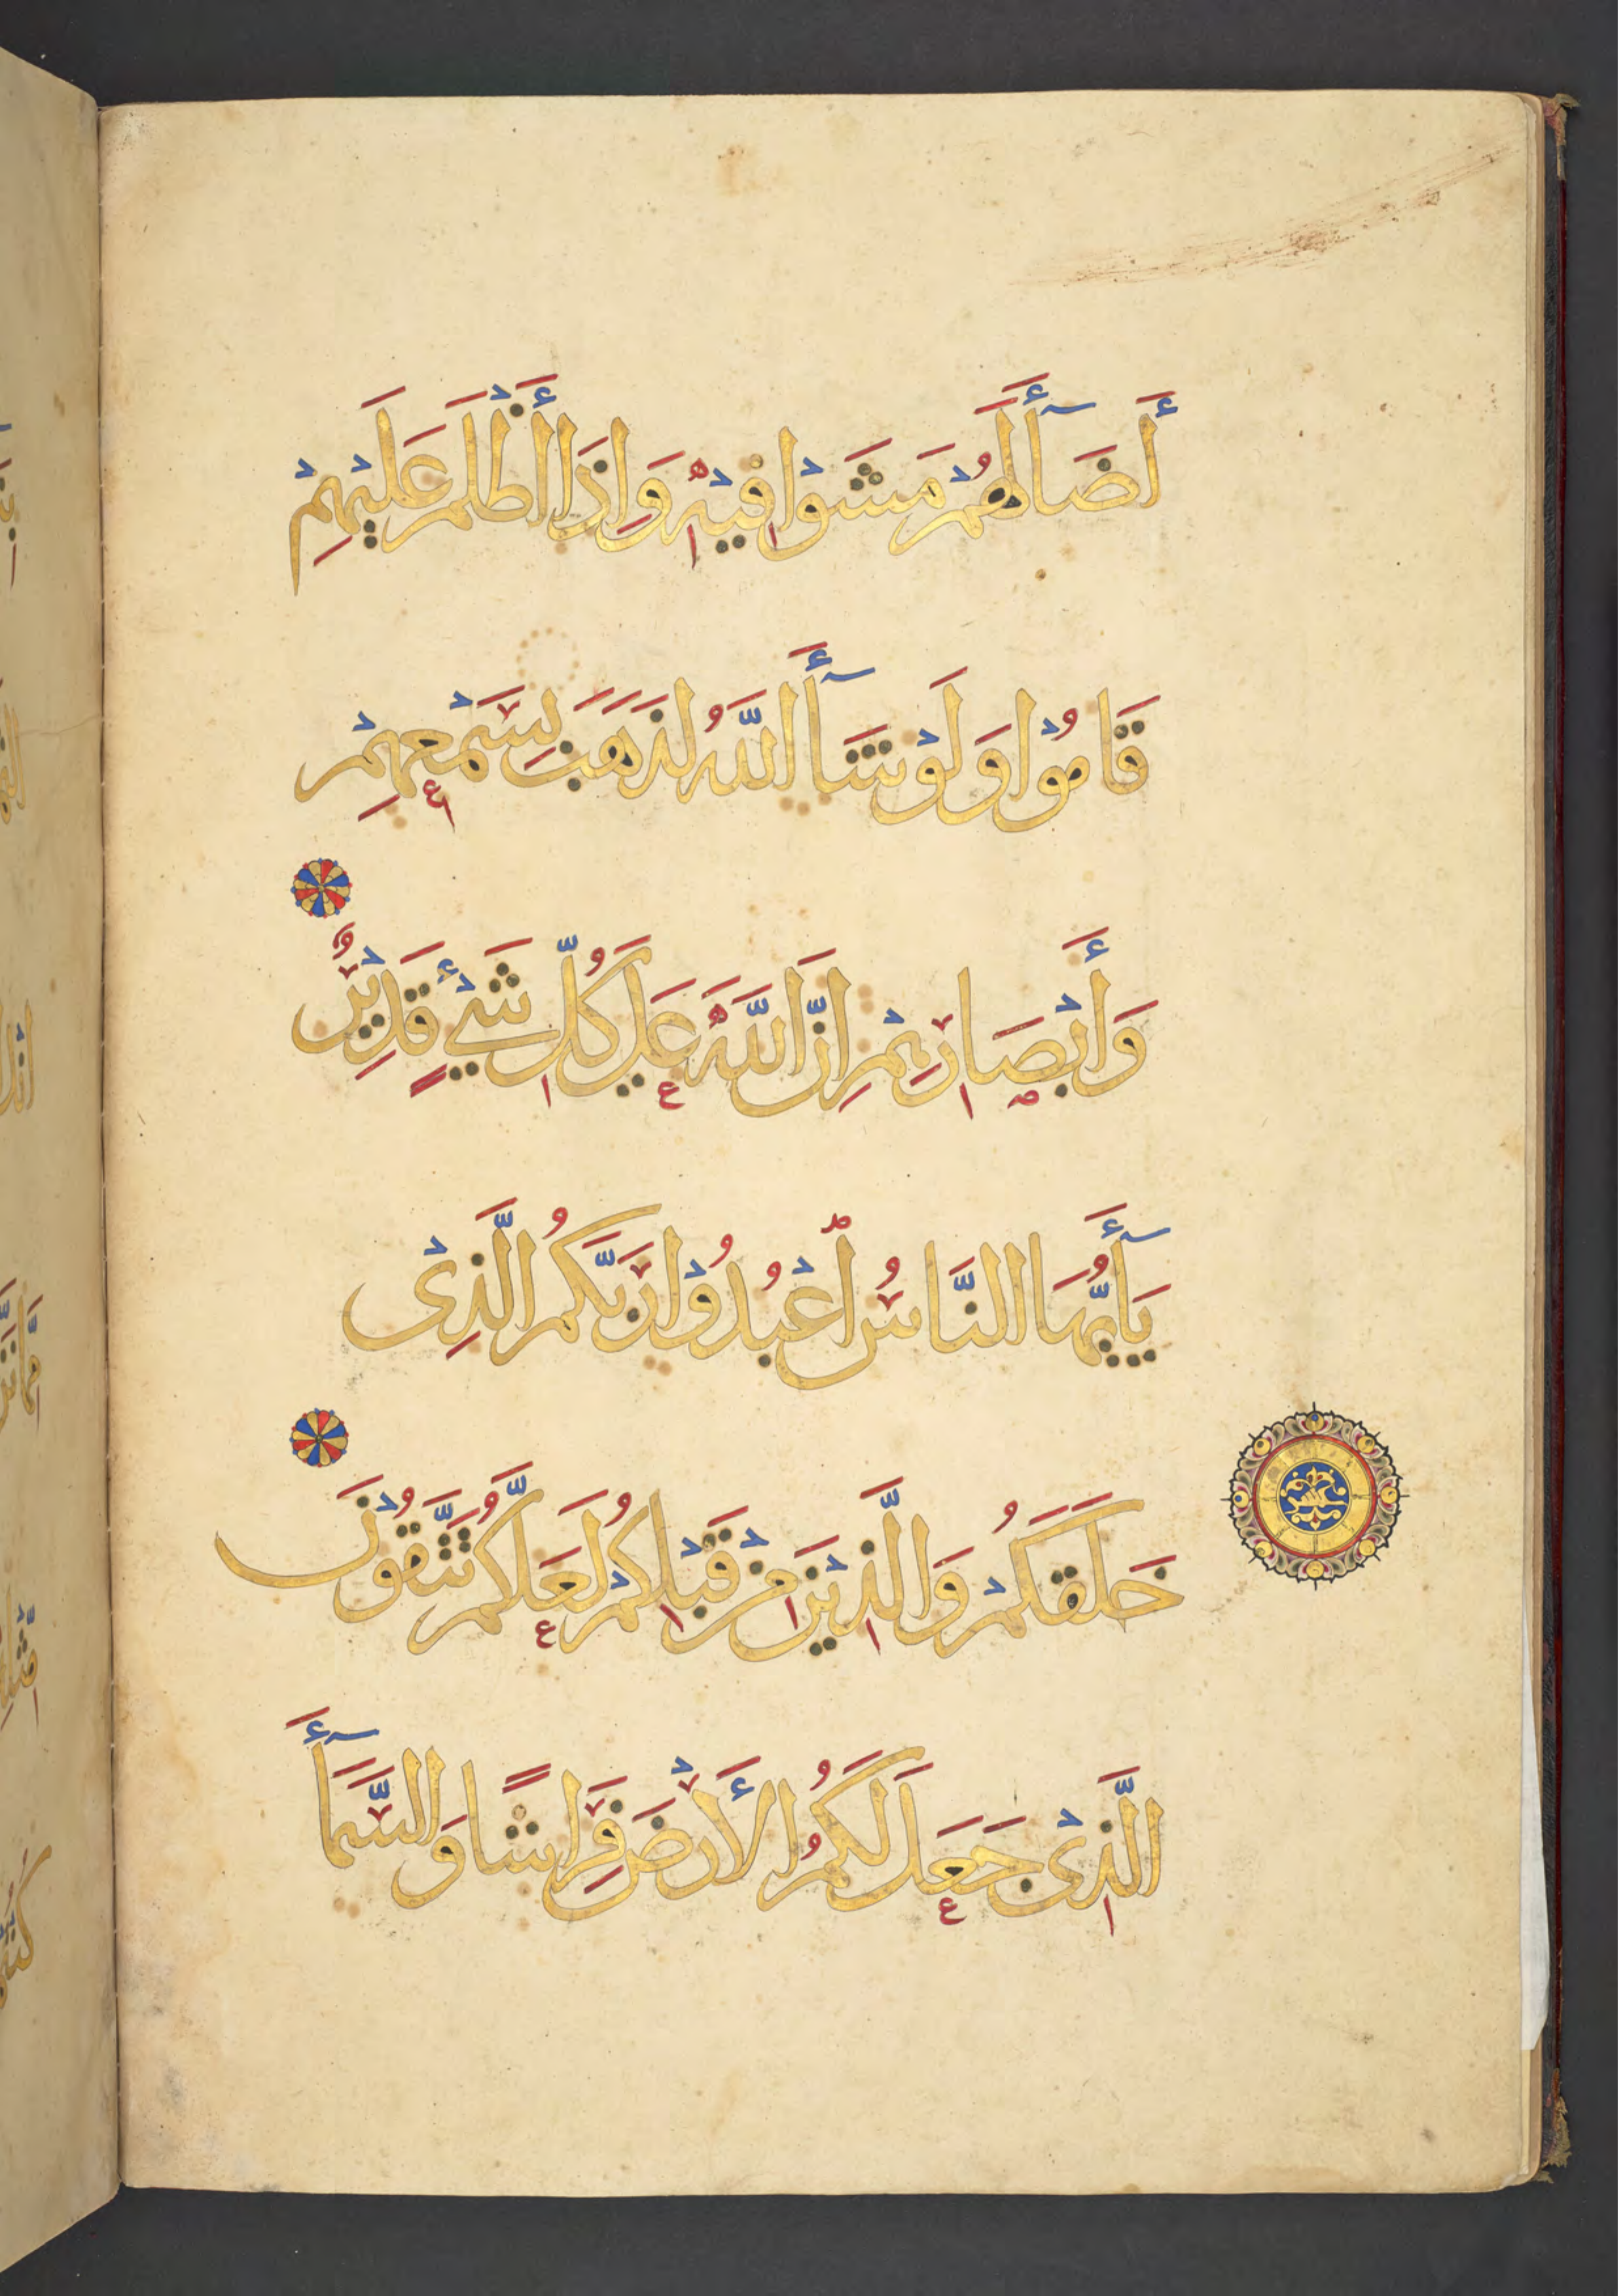 أَضَآأَلَهُمْ مَشَوْا فِيْهِ وَإِذَا أَظْلَمَ عَلَيْهِمْ
قَامُوْا وَلَوْ شَآأَ اللَّهُ لَذَهَبَ بِسَمْعِهِمْ
وَأَبْصَارِهِمْ إِنَّ اللَّهَ عَلَى كُلِّ شَيْءٍ قَدِيْرٌ
يَآأَيُّهَا النَّاسُ اعْبُدُوْا رَبَّكُمُ الَّذِيْ
خَلَقَكُمْ وَالَّذِيْنَ مِنْ قَبْلِكُمْ لَعَلَّكُمْ تَتَّقُوْنَ
الَّذِيْ جَعَلَ لَكُمُ الْأَرْضَ فِرَاشًا وَالسَّمَآأَ